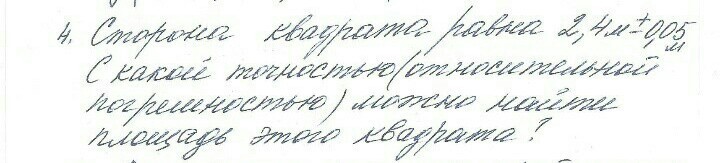 4. Сторона квадрата равна 2,4м ± 0,05 м
С какой точностью (относительной
погрешностью) можно найти
площадь этого квадрата?